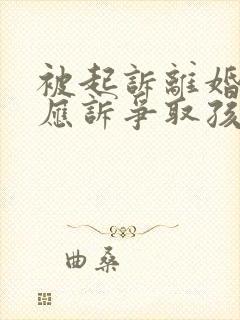 被起訴離婚
應訴爭取孩
曲桑